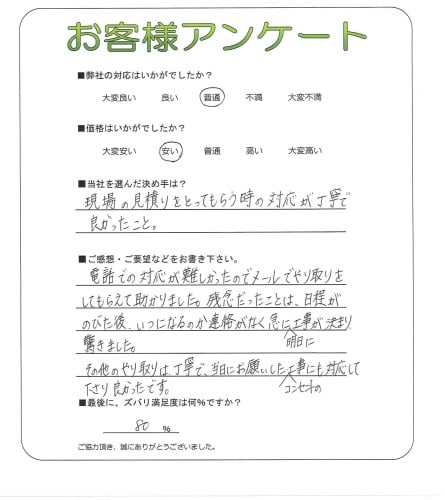 お客様アンケート
■弊社の対応はいかがでしたか?
大変良い 良い 普通 不満 大変不満
■価格はいかがでしたか?
大変安い 安い 普通 高い 大変高い
■当社を選んだ決め手は?
現場の見積りをとってもらう時の対応が丁寧で
良かったこと。
■ご感想・ご要望などをお書き下さい。
電話での対応が難しかったのでメールでやり取りを
してもらえて助かりました。残念だったことは、日程が
のびた後、いつになるのか連絡がなく急に工事が決まり
驚きました。 明日に
その他のやり取りは丁寧で、当日にお願いした工事にも対応して
下さり良かったです。 コンセントの
■最後に、ズバリ満足度は何%ですか?
80 %
ご協力頂き、誠にありがとうございました。